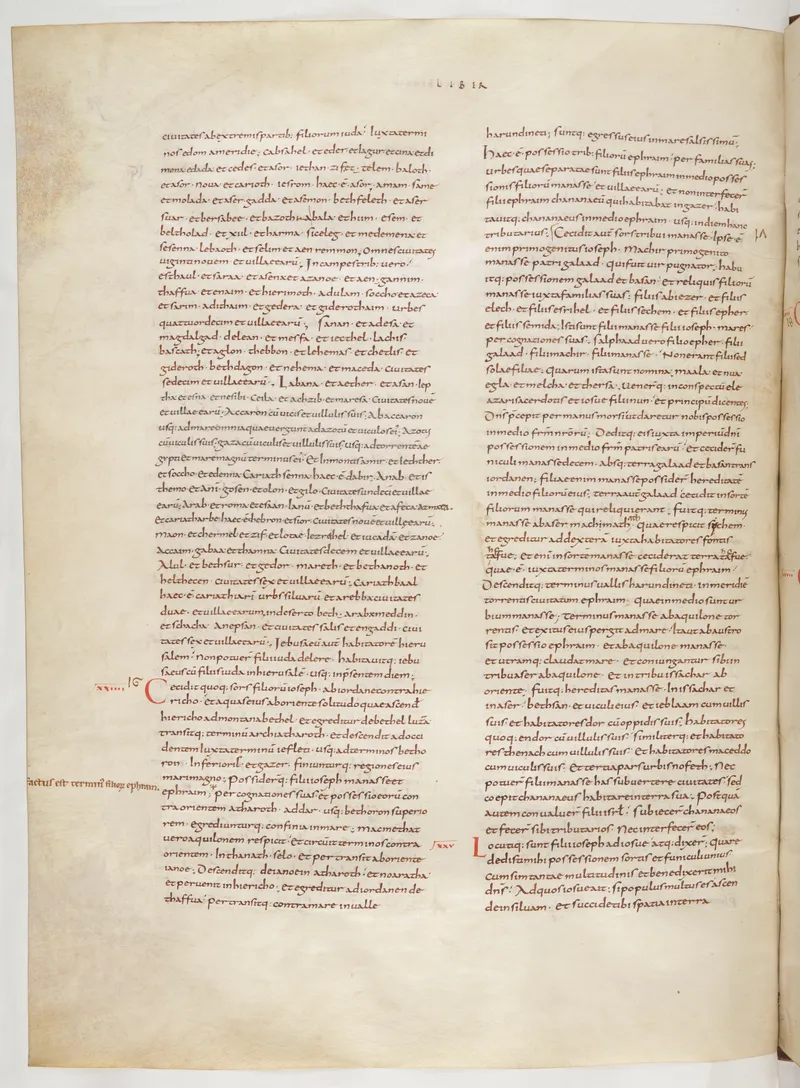 LIBER
ciuitates ab extremis partib; filiorum iuda. Iuxta termi
nos edom a meridie; cabsahel et eder et iagur et cina et di
mona edada et cedes et asor. iethnan. zifet. telem. baloth.
et asor. noua et carioth. hesrom. haec ē asor. amam. same
et molada. et aser gadda. et asemon. beth feleth. et aser
sual. et bersabee. et baziothia. et bala. et hiim. esem. et
heltholad. et xiil. et harma. siceleg. et medemena et
sensenna. lebaoth. et selim et aen remmon; Omnes ciuitates
uiginti nouem. et uillae earū; In campestrib; uero.
esthaul. et saraa. et asena et azanoe. et aen gannim.
thaffua. et enaim. et hierimoth. adulam. soccho et azeca
et sarim. adithaim. et gedera. et giderothaim. urbes
quattuordecim et uillae earū; Sanan. et adesa. et
magdalgad. delean. et mesfa. et iecthel. lachis
bascath. et aglon. thebbon. et lehemas. et chetlis. et
gideroth. bethdagon. et neema. et maceda. ciuitates
sedecim et uillae earū. Labana. et aether. et asan. iep
tha et esna. et nesib. Ceila. et achzib. et maresa. Ciuitates nouē
et uillae earū; Accaron cū uicis et uillulis suis; Ab accaron
usq; ad mare omnia quae uergunt ad azotū et uiculos ei; Azotus
cū uiculis suis. gaza cū uiculis et uillulis suis usq; ad torrentē ae
gypti et mare magnū terminus ei; Et in monte samir. et iether.
et soccho. et edenna. Cariath senna. haec ē dabir. Anab. et is
themo et ani. gosen. et olon. et gilo. Ciuitates undeci et uillae
earū; Arab. et roma. et esaan. Ianū et beththafua et afeca. Ammatha.
et cariatharbe haec ē hebron. et sior. Ciuitates nouē et uillae earū;
maon. et chermel. et zif. et iotae. Iezrahel. et iucadā. et zanoe.
Accain. gabaa. et thamna. Ciuitates decem et uillae earū;
Alul. et bethsur. et gedor. mareth. et bethanoth. et
helthecen. ciuitates sex et uillae earū; cariathbaal
haec ē cariathiarī urbs siluarū et arebba ciuitates
duae. et uillae earum, in deserto beth; araba. meddin.
et schacha. A nepsan. et ciuitas salis et engaddi. ciui
tates sex et uillae earū; Iebuseū aut habitatorē hieru
salem. non potuer filii iuda delere. habitauitq; iebu
saeus cū filiis iuda in hierusalē. usq; in psentem diem;
XXIIII XVI Cecidit quoq; sors filiorū ioseph. ab iordane contra hie
richo. et aquas eius ab oriente solitudo quae ascend
hiericho ad montana bethel. et egreditur de bethel luza
transitq; terminū archi atharoth. et descendit ad occi
dentem. Iuxta terminū iefleti. usq; ad terminos betho
ron. Inferioris. et gazer. finiunturq; regiones eius
mari magno; Possideruntq; filii ioseph manasse et
factus est terminus filiorum ephraim.
ephraim; per cognationes suas et possessio eorū con
tra orientem atharoth. addar. usq; bethoron superio
rem. egrediunturq; confinia in mare; macmethat
uero aquilonem respicit. et circuit terminos contra
orientem. In thanathselo. et pertransit ab oriente
ianoe. Descenditq; de ianoe in atharoth. et noaratha.
et peruenit in hiericho. et egreditur ad iordanen de
thaffua. pertransitq; contra mare in ualle
harundineti; suntq; egressus eius in mare salsissimū;
Haec ē possessio trib; filiorū ephraim. per familias suas;
urbesquae separatae sunt filiis ephraim in medio posses
sionis filiorū manasse. et uillae earū; et non interfecer
filii ephraim chananeū qui habitabat in gazer. habi
tauitq; chananeus in medio ephraim. usq; in diem hanc
tributarius; Cecidit aut sors tribui manasse. Ipse ē
enim primogenitus ioseph. Machir primogenito
manasse patri galaad. qui fuit uir pugnator; habu
itq; possessionem galaad et basan. et reliquis filiorū
manasse iuxta familias suas; filiis abiezer. et filiis
elech. et filiis esrihel. et filiis sechem. et filiis epher.
et filiis semida; Isti sunt filii manasse filii ioseph. mares
per cognationes suas. Salphaad uero filio epher. filii
galaad. filii machir. filii manasse. Non erant filii sed
solae filiae. quarum ista sunt nomina; maala. et nua
egla. et melcha. et thersa. Ueneruntq; in conspectū ele
azari sacerdotis. et iosue filii nun. et principū dicentes
Dns pcepit per manū mosi ut daretur nobis possessio
in medio frm nrōrū; Deditq; eis iuxta imperiū dnī
possessionem in medio frm patris earū. et ceciderunt fu
niculi manasse decem. Absq; terra galaad et basan trans
iordanen; filiae enim manasse possider hereditatē
in medio filiorū eius. terra aut galaad cecidit in sortē
filiorum manasse qui reliqui erant; fuitq; terminus
manasse ab aser machmathath. quae respicit sychem.
et egreditur ad dexterā iuxta habitatores fontis
tafue; et eni in sortē manasse ceciderat terra tafue.
quae ē iuxta terminos manasse filiorū ephraim.
Descenditq; terminus uallis harundineti in meridiē
torrentis ciuitatum ephraim. quae in medio sunt ur
bium manasse; Terminus manasse ab aquilone tor
rentis. et exitus eius pergit ad mare. Ita ut ab austro
sit possessio ephraim. et ab aquilone manasse.
et utramq; claudat mare. et coniungantur sibi in
tribu aser ab aquilone. et in tribu issachar ab
oriente. fuitq; hereditas manasse. In issachar et
in aser. bethsan. et uiculi eius. et ieblaam cum uillis
suis. et habitatores dor cū oppidis suis. habitatores
quoq; endor cū uillulis suis. similiterq; et habitato
res thenach cum uillulis suis. et habitatores maceddo
cum uiculis suis. et tertia pars urbis nofeth. Nec
potuer filii manasse has subuertere ciuitates sed
coepit chananeus habitare in terra sua. Postquā
autem conualuer filii isrl. subiecer chananeos
et fecer sibi tributarios. nec interfecer eos;
XXV Locutiq; sunt filii ioseph ad iosue atq; dixer; quare
dedisti mihi possessionem sortis et funiculi unius
Cum sim tantae multitudinis et benedixerit mihi
dns. Ad quos iosue ait; si populus multus es ascen
de in siluam. et succide tibi spatia in terra